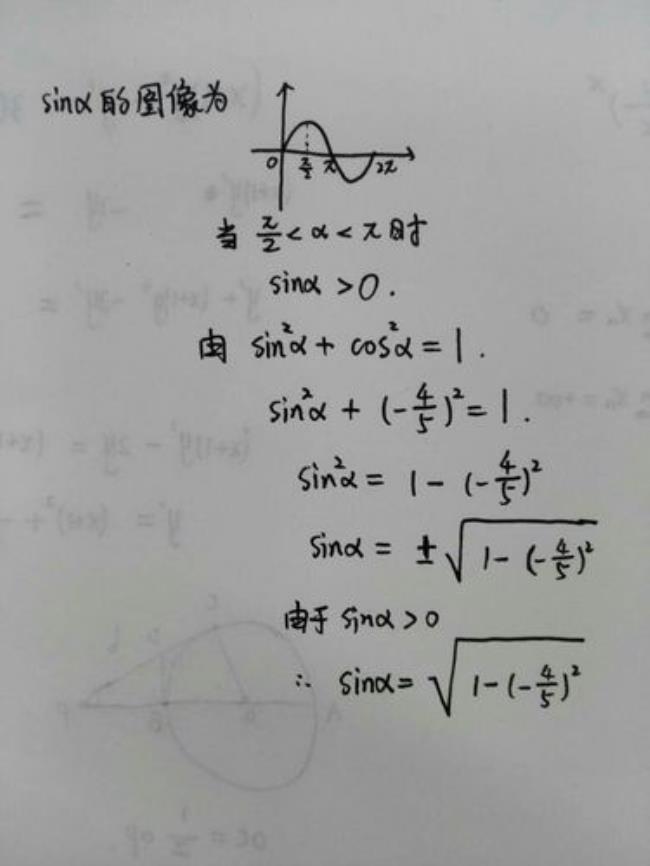 sinα的图像为
0 π/2 π 2π
当 π/2 < α < π 时
sinα > 0.
由 sin²α + cos²α = 1.
sin²α + (-4/5)² = 1.
sin²α = 1 - (-4/5)²
sinα = ±√(1 - (-4/5)²)
由于 sinα > 0
∴ sinα = √(1 - (-4/5)²)